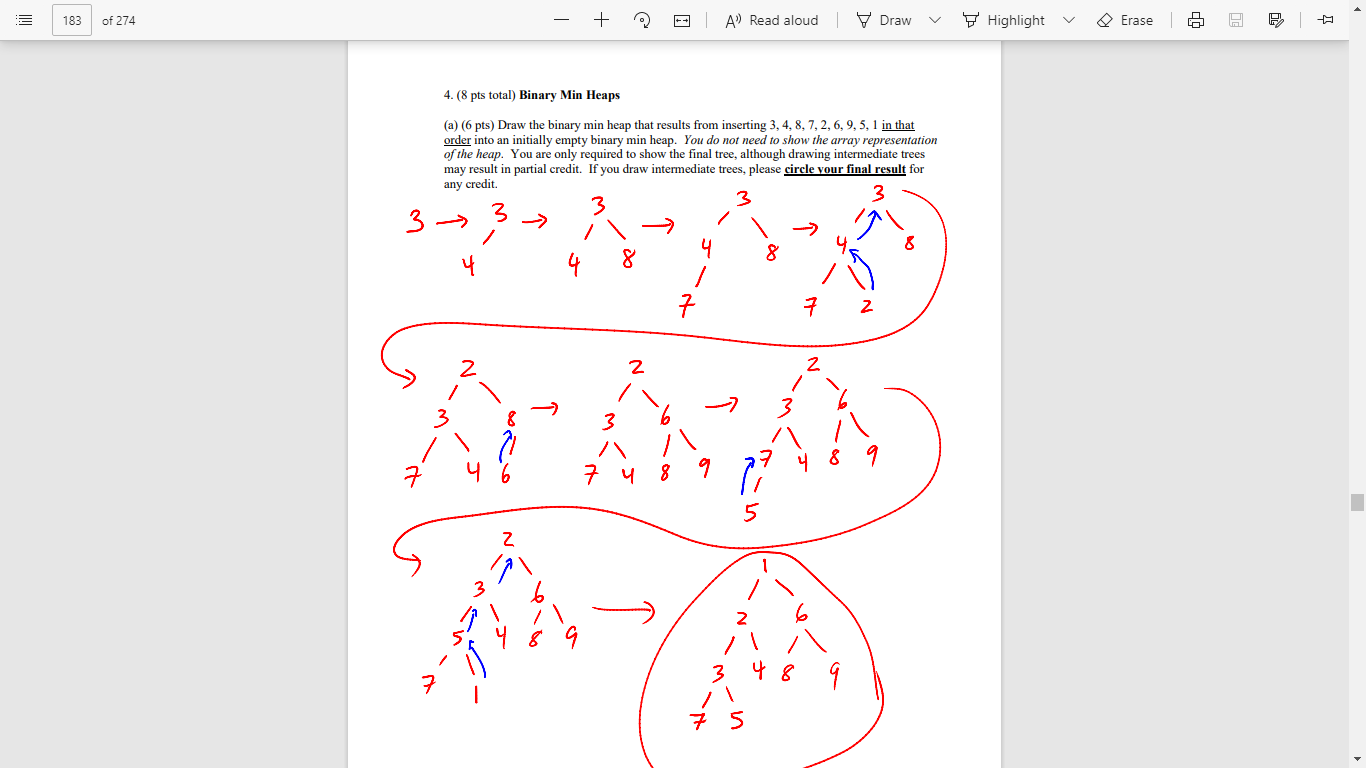 183 of 274 Read aloud Draw Highlight Erase
4. (8 pts total) Binary Min Heaps
(a) (6 pts) Draw the binary min heap that results from inserting 3, 4, 8, 7, 2, 6, 9, 5, 1 in that
order into an initially empty binary min heap. You do not need to show the array representation
of the heap. You are only required to show the final tree, although drawing intermediate trees
may result in partial credit. If you draw intermediate trees, please circle your final result for
any credit.
3 → 3 → 3 → 3 → 3
4 4 8 4 8 4 8
7 7 2
2 2 2
3 8 → 3 6 → 3 6
7 4 6 7 4 8 9 7 4 8 9
5
2 1
3 6 → 2 6
5 4 8 9 3 4 8 9
7 1 7 5